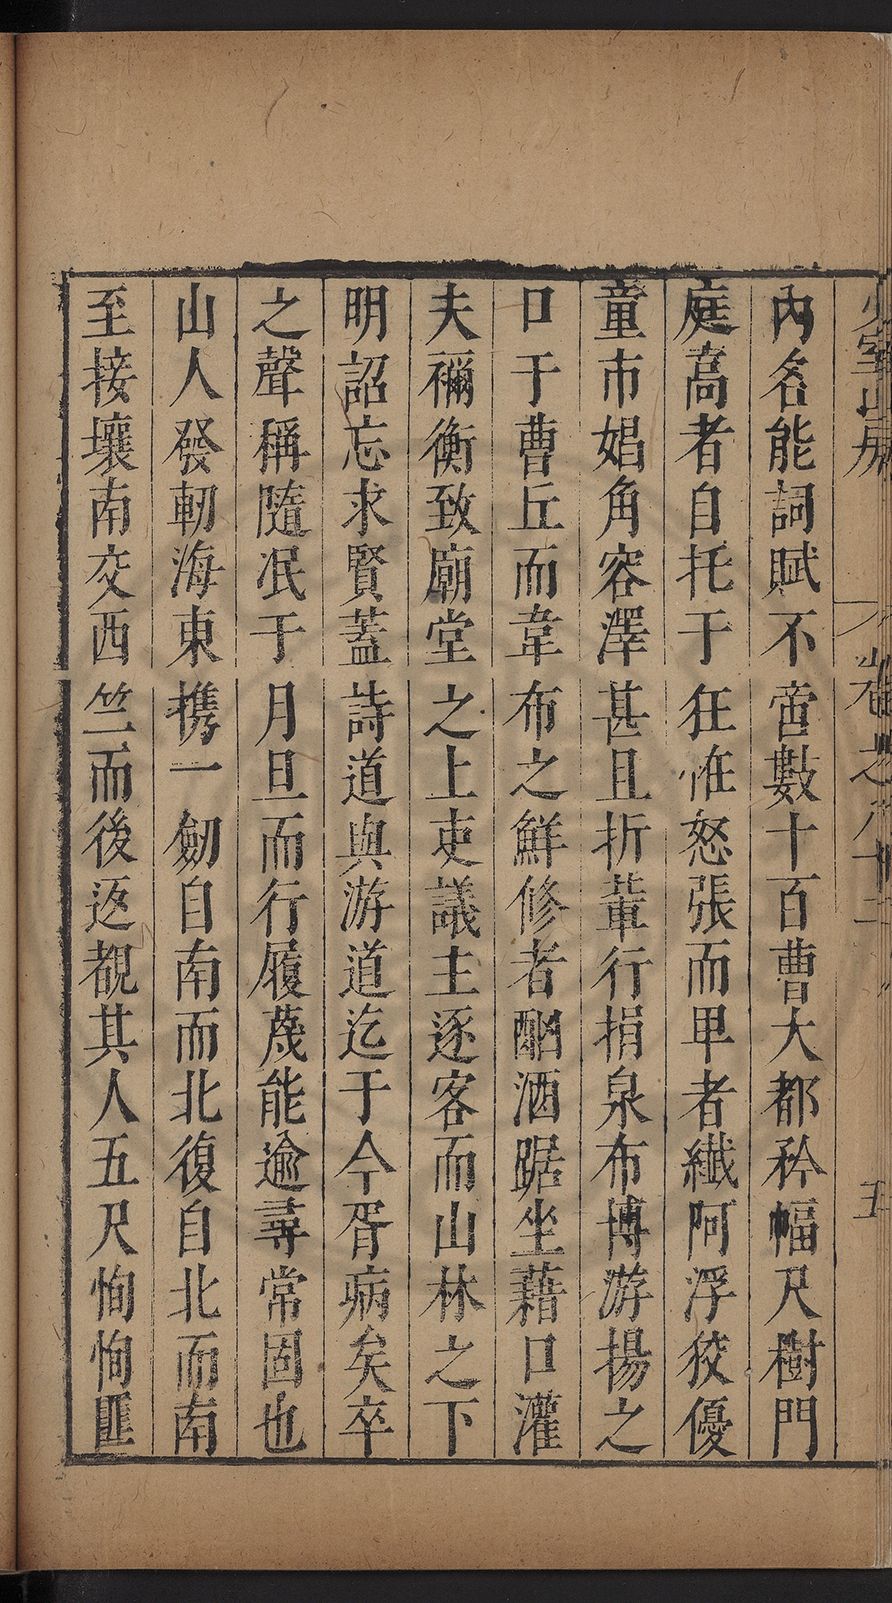 少室山房 卷之八十二 五
內名能詞賦不啻數十百曹大都矜幅尺樹門
庭高者自托于狂怪怒張而卑者纎阿浮狡優
童市娼角容澤甚且折輩行捐泉布博游揚之
口于曹丘而韋布之鮮修者酗酒踞坐藉口灌
夫禰衡致廟堂之上吏議主逐客而山林之下
明詔忘求賢蓋詩道與游道迄于今胥病矣卒
之聲稱隨泯于月旦而行履蔑能逾尋常固也
山人發軔海東携一劒自南而北復自北而南
至接壤南交西竺而後返覩其人五尺恂恂匪